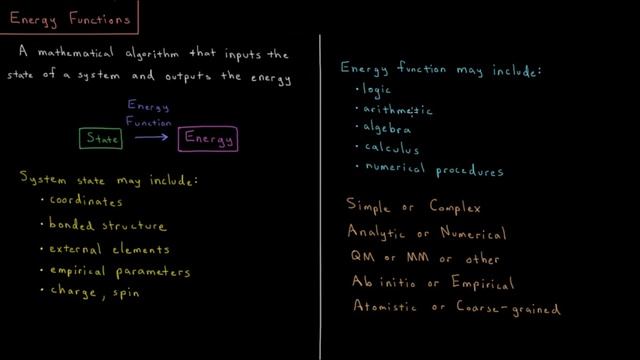 Energy Functions
A mathematical algorithm that inputs the
state of a system and outputs the energy
Energy
Function
State
Energy
System state may include:
• coordinates
• bonded structure
• external elements
• empirical parameters
• charge, spin
Energy function may include:
• logic
• arithmetic
• algebra
• calculus
• numerical procedures
Simple or Complex
Analytic or Numerical
QM or MM or other
Ab initio or Empirical
Atomistic or Coarse-grained